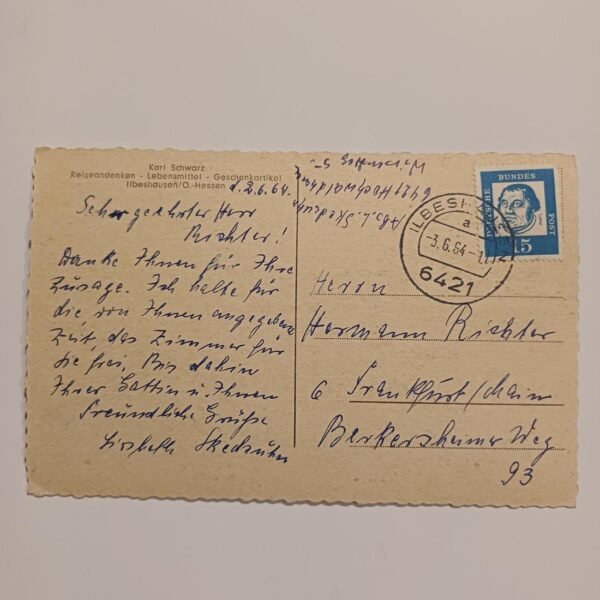 Karl Schwarz
Reiseandenken - Lebensmittel - Geschenkartikel
Ilbeshausen/O.-Hessen d. 2.6.64.
Sehr geehrter Herr
Richter!
Danke Ihnen für Ihre
Zusage. Ich halte für
die von Ihnen angegebene
Zeit, das Zimmer für
Sie frei. Bis dahin
Ihrer Gattin u. Ihnen
Freundliche Grüße
Lisbeth Skedzuhn
Abs. L. Skedzuhn
6421 Hochwaldhausen
DEUTSCHE BUNDESPOST
15
ILBESHAUSEN
a
-3.6.64-1
6421
Herrn
Hermann Richter
6 Frankfurt/Main
Berkersheimer Weg
93